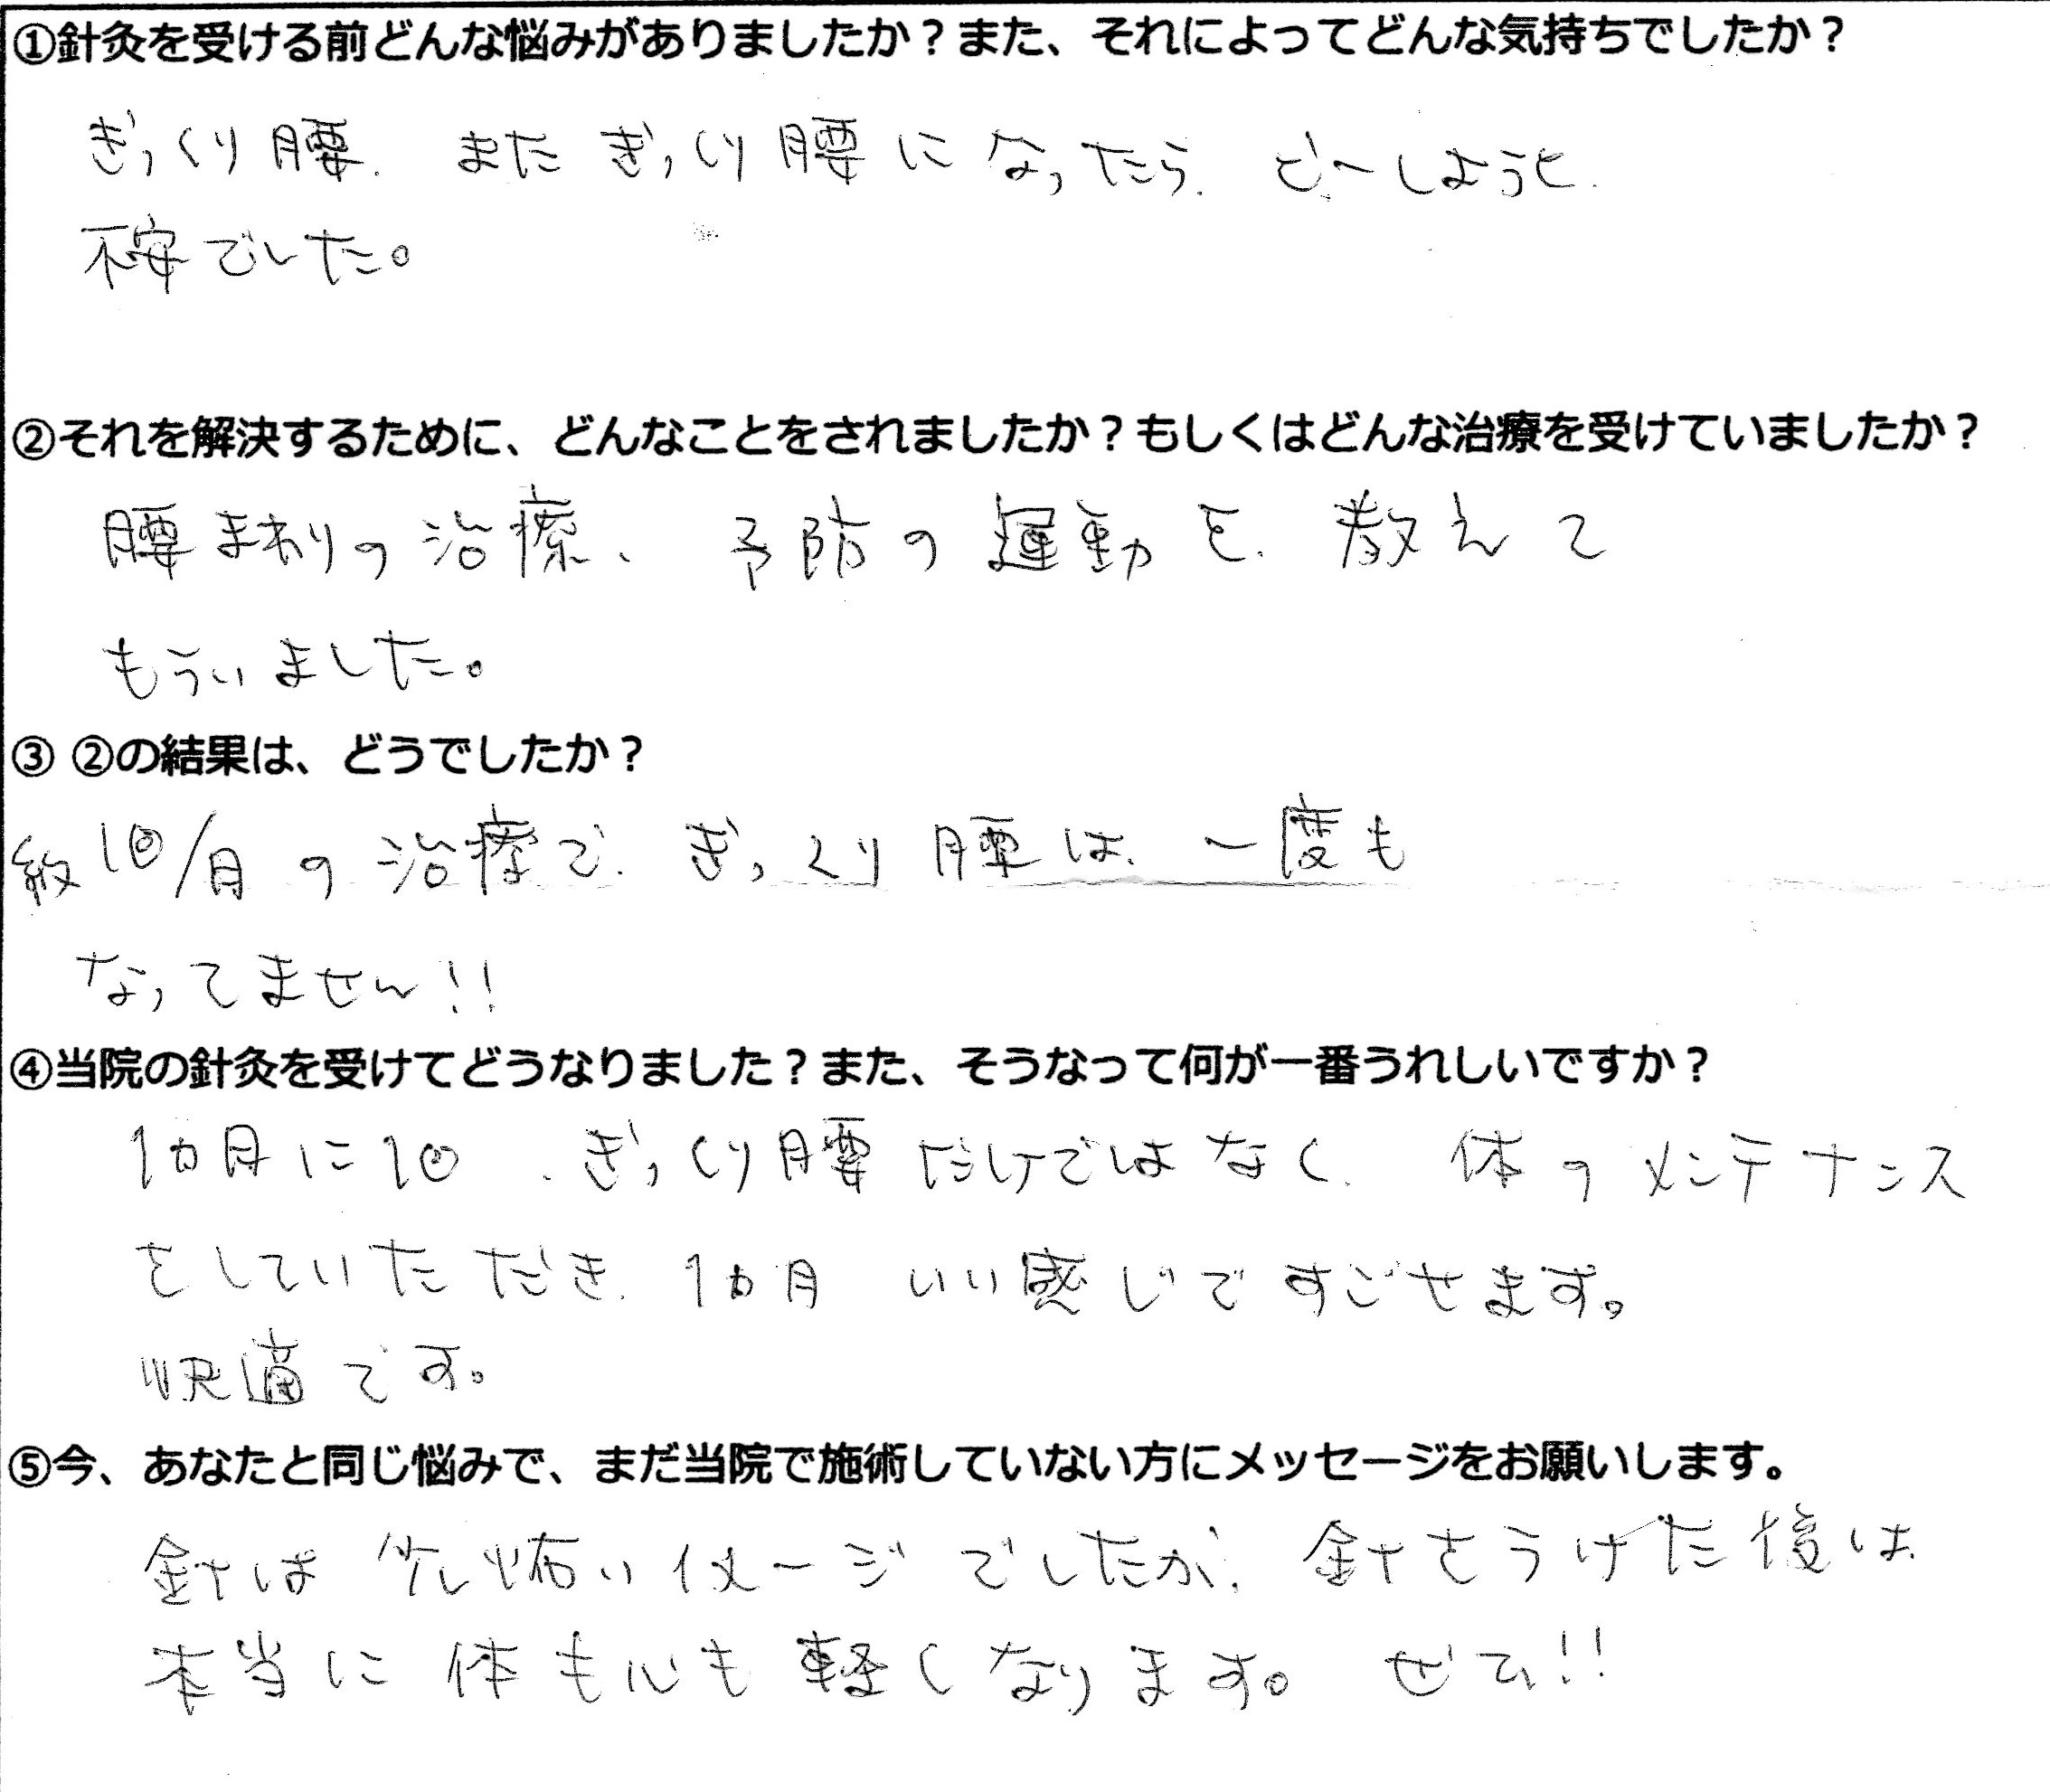 ①針灸を受ける前どんな悩みがありましたか？また、それによってどんな気持ちでしたか？
ぎっくり腰、またぎっくり腰になったら、どーしようと、
不安でした。
②それを解決するために、どんなことをされましたか？もしくはどんな治療を受けていましたか？
腰まわりの治療、予防の運動を、教えて
もらいました。
③ ②の結果は、どうでしたか？
約1回/月の治療で、ぎっくり腰は、一度も
なってません!!
④当院の針灸を受けてどうなりました？また、そうなって何が一番うれしいですか？
1カ月に1回、ぎっくり腰だけではなく、体のメンテナンス
をしていただき、1カ月 いい感じですごせます。
快適です。
⑤今、あなたと同じ悩みで、まだ当院で施術していない方にメッセージをお願いします。
針は少し怖いイメージでしたが、針をうけた後は、
本当に体も心も軽くなります。ぜひ!!